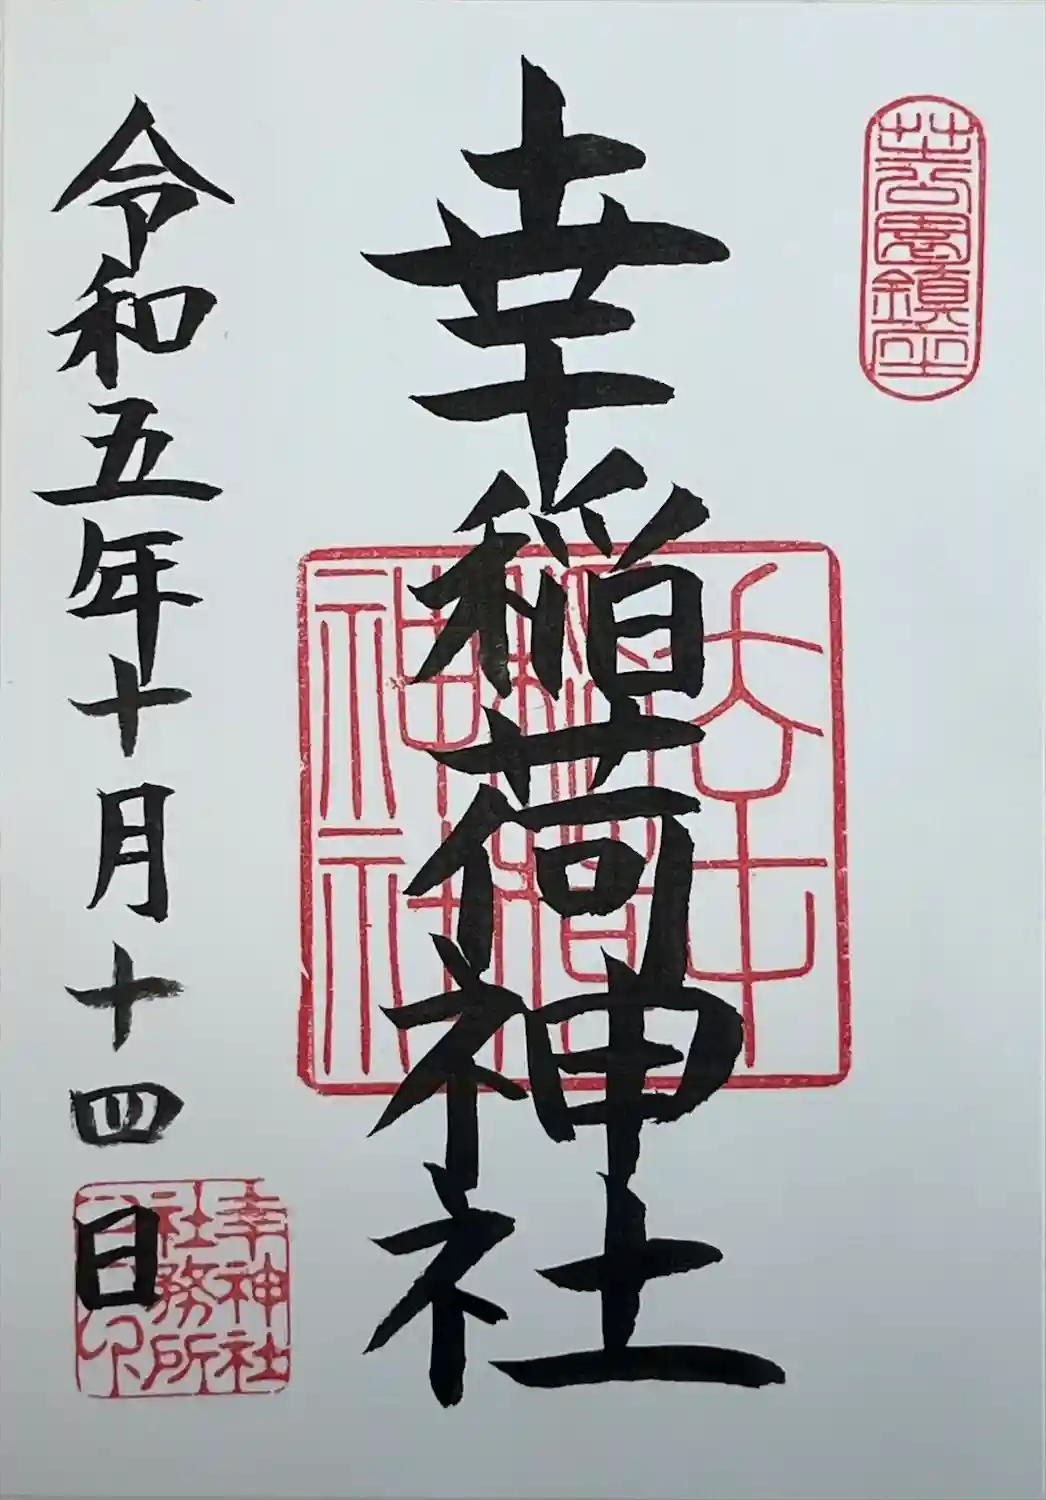 芝公園鎮座
幸稲荷神社
令和五年十月十四日
幸神社
社務所
印